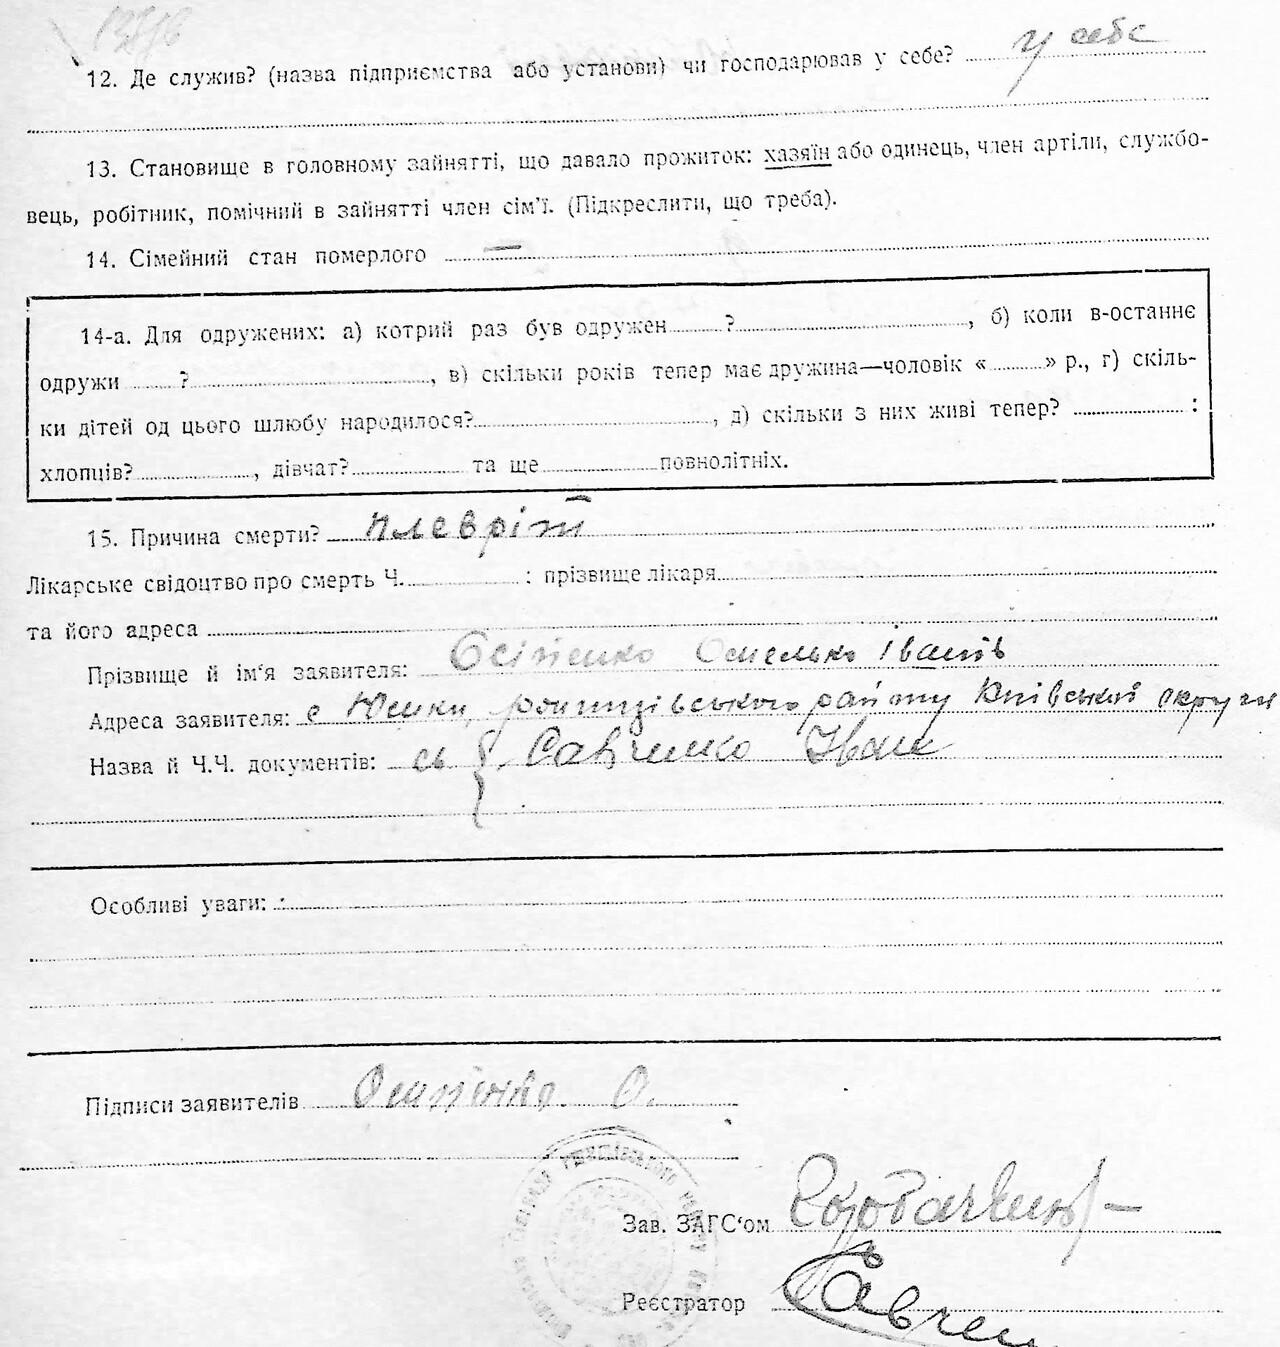 12. Де служив? (назва підприємства або установи) чи господарював у себе? у себе
13. Становище в головному зайнятті, що давало прожиток: хазяїн або одинець, член артіли, службо-
вець, робітник, помічний в зайнятті член сім'ї. (Підкреслити, що треба).
14. Сімейний стан померлого —
14-а. Для одружених: а) котрий раз був одружен ? , б) коли в-останнє
одружи ? , в) скільки років тепер має дружина—чоловік « » р., г) скіль-
ки дітей од цього шлюбу народилося? , д) скільки з них живі тепер? :
хлопців? , дівчат? та ще повнолітніх.
15. Причина смерти? плевріт
Лікарське свідоцтво про смерть Ч. : прізвище лікаря
та його адреса
Прізвище й ім'я заявителя: Осіпенко Омелько Іванів
Адреса заявителя: с Юшки, ржищівського району Київської округи
Назва й Ч.Ч. документів: св. Савченко Іван
Особливі уваги:
Підписи заявителів Осипенко О.
Зав. ЗАГС'ом
Реєстратор Савчен